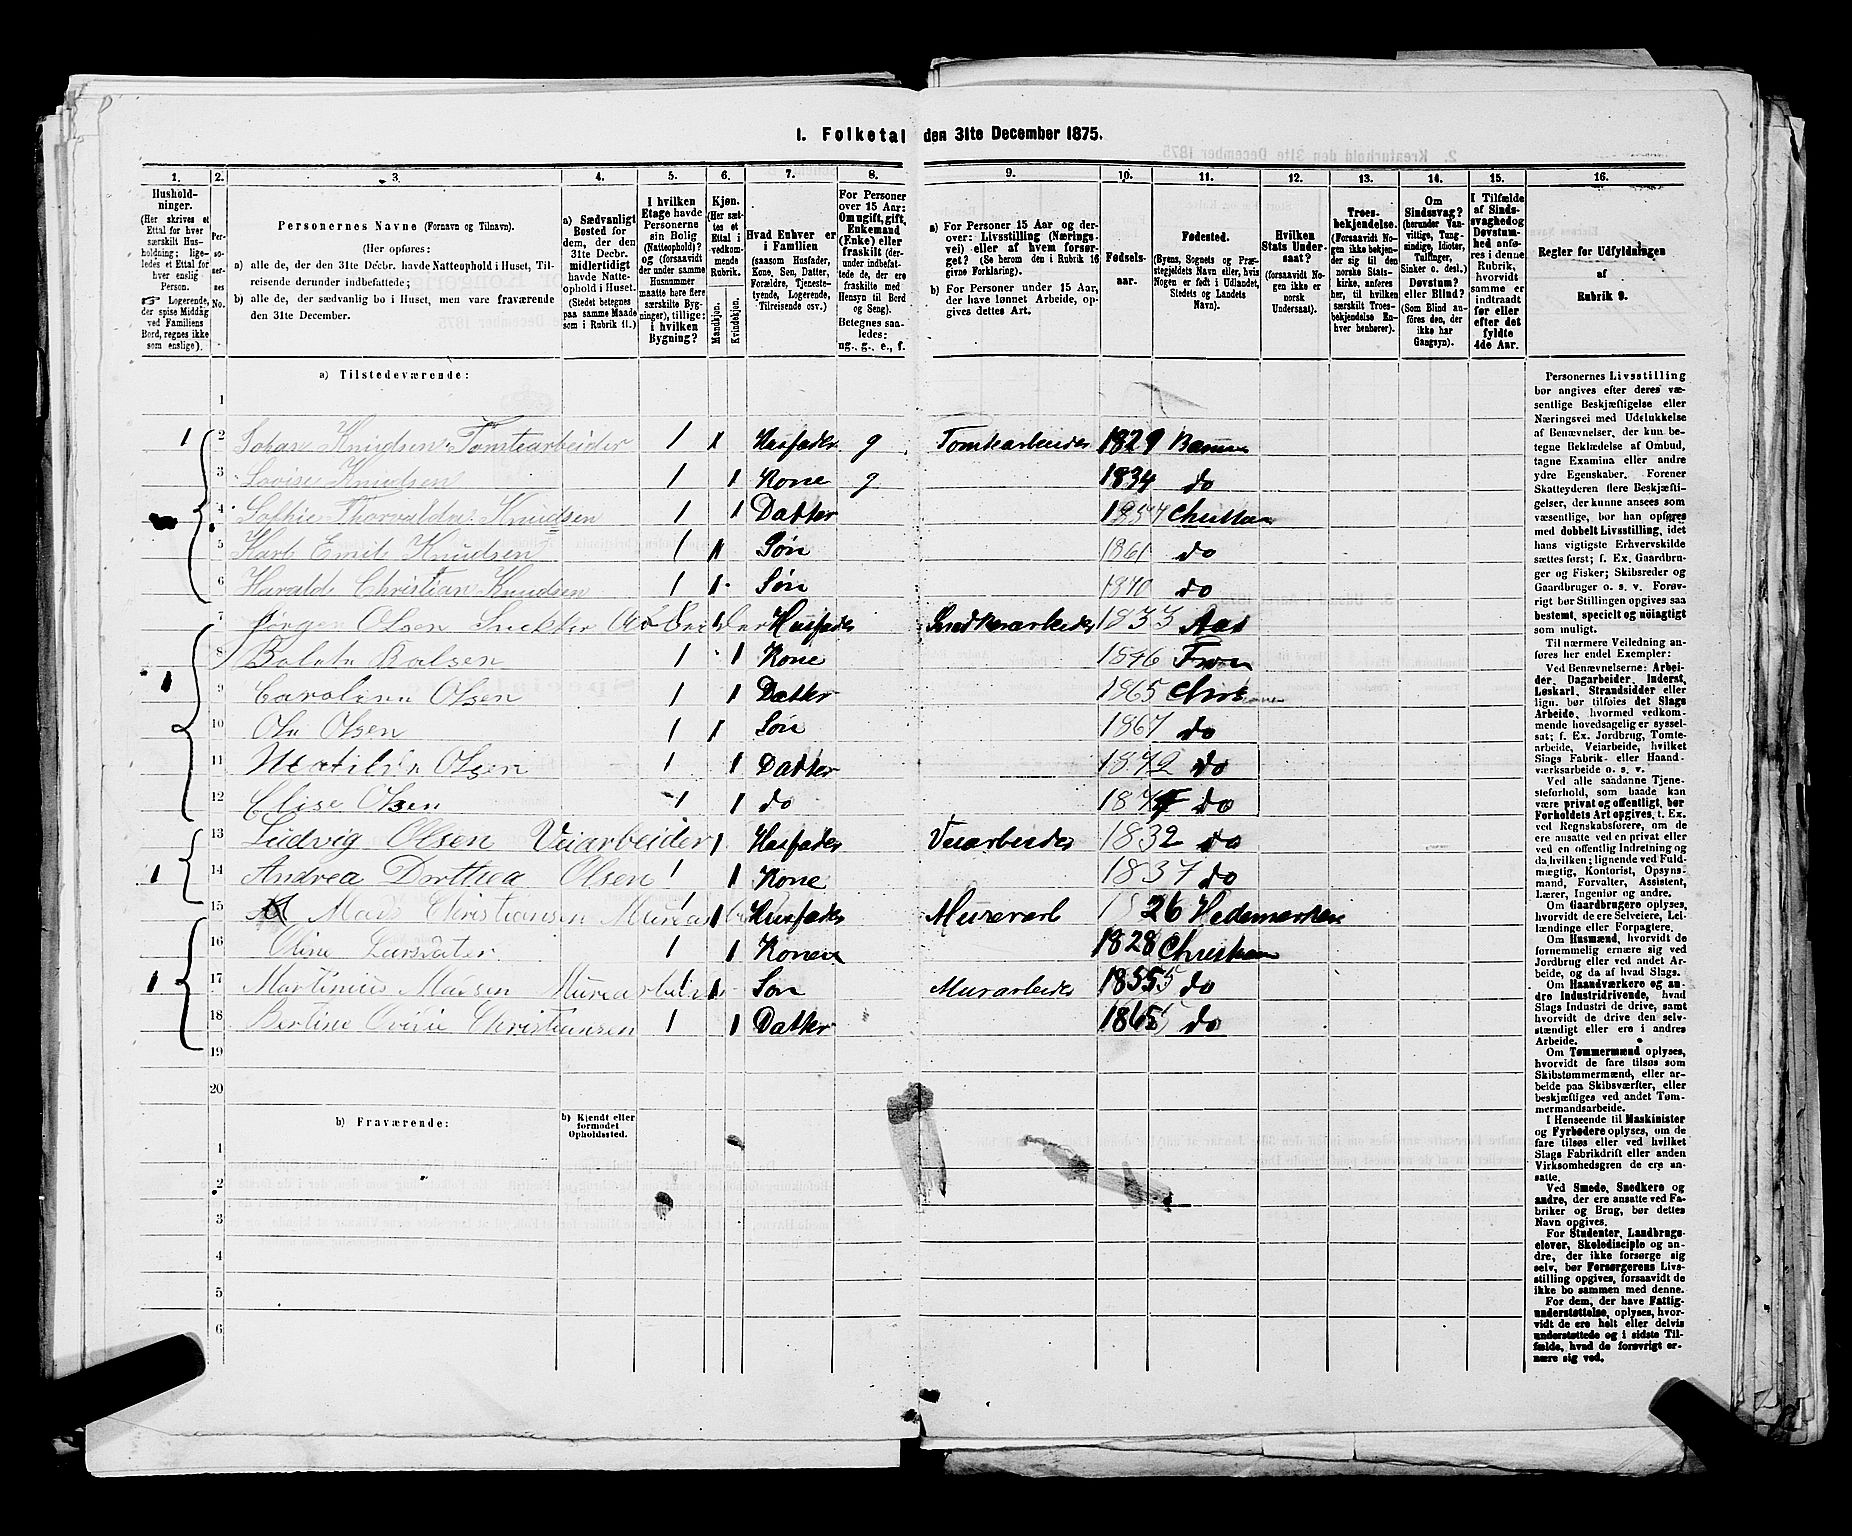 I. Folketal den 31te December 1875.
1. 2. 3. 4. 5. 6. 7. 8. 9. 10. 11. 12. 13. 14. 15. 16.
Husholdninger. (Her skrives et Ettal for hver særskilt Husholdning; ligeledes et Ettal for hver enslig Person. Logerende, der spise Middag ved Familiens Bord, regnes ikke som enslige).
Personernes No.
Personernes Navne (Fornavn og Tilnavn).
(Her opføres:
a) alle de, der den 31te Decbr. havde Natteophold i Huset, Tilreisende derunder indbefattede;
b) alle de, der sædvanlig bo i Huset, men vare fraværende den 31te December.
a) Sædvanligt Bosted for dem, der den 31te Decbr. midlertidigt havde Natteophold i Huset. (Stedet betegnes paa samme Maade som i Rubrik 11.)
I hvilken Etage havde Personerne sin Bolig (Natteophold)? og (forsaavidt der under samme Husnummer maatte høre flere særskilte Bygninger), tillige: i hvilken Bygning?
Kjøn. (Her sættes et Ettal i vedkommende Rubrik.
Mandkjøn. Kvindekjøn.
Hvad Enhver er i Familien (saasom Husfader, Kone, Søn, Datter, Forældre, Tjenestetyende, Logerende, Tilreisende osv.)
For Personer over 15 Aar: Om ugift, gift, Enkemand (Enke) eller fraskilt (derunder indbefattede de, der ere fraskilte med Hensyn til Bord og Seng). Betegnes saaledes: ug., g., e., f.
a) For Personer 15 Aar og derover: Livsstilling (Næringsvei) eller af hvem forsørget? (Se herom den i Rubrik 16 givne Forklaring).
b) For Personer under 15 Aar, der have lønnet Arbeide, opgives dettes Art.
Fødselsaar.
Fødested. (Byens, Sognets og Præstegjeldets Navn eller, hvis Nogen er født i Udlandet, Stedets og Landets Navn).
Hvilken Stats Undersaat? (forsaavidt Nogen ikke er norsk Undersaat).
Troesbekjendelse. (Forsaavidt Nogen ikke bekjender sig til den norske Statskirke, anføres her, til hvilken særskilt Troesbekjendelse Enhver henhører).
Om Sindssvag? (herunder Vanvittige, Tungsindige, Idioter, Tullinger, Sinker o. desl.) Døvstum? eller Blind? (Som Blind anføres den, der ikke har Gangsyn).
I Tilfælde af Sindssvaghed og Døvstumhed anføres i denne Rubrik, hvorvidt samme er indtraadt før eller efter det fyldte 4de Aar.
Regler for Udfyldningen af Rubrik 9.
a) Tilstedeværende:
1
1 2 Johan Knudsen Tomtearbeider 1 1 Husfader g Tomtearbeider 1829
3 Lovise Knudsen 1 1 Kone g 1834 do
4 Sofhie Thorvalda Knudsen 1 1 Datter
5 Karl Emil Knudsen 1 1 Søn 1861 do
6 Harald Christian Knudsen 1 1 Søn 1870 do
7 Jørgen Olsen 1 Husfader 1833
1 8 Olsen 1 1 Kone 1846
9 Caroline Olsen 1 1 Datter 1865
10 Ole Olsen 1 1 Søn 1867 do
11 Matilda Olsen 1 1 Datter 1872 do
12 Elise Olsen 1 1 do do
13 Ludvig Olsen Veiarbeider 1 Husfader Veiarbeider 1832 do
1 14 Andrea Dorthea Olsen 1 1 Kone 1837 do
15 Mads Christiansen 1 1 Husfader Murerarb 1826 Hedemarken
16 Oline Larsdater 1 1 Konen 1828
1 17 Martinius Madsen 1 Søn Murarbeider 1855 do
18 Bertine Christiansen 1 1 Datter 1865 do
19
20
b) Fraværende: b) Kjendt eller formodet Opholdssted.
1
2
3
4
5
6
Personernes Livsstilling
bør angives efter deres væsentlige
Beskjæftigelse eller
Næringsvei med Udelukkelse
af Benævnelser, der kun betegne
Beklædelse af Ombud,
tagne Examina eller andre
ydre Egenskaber. Forener
Skatteyderen flere Beskjæftigelser,
der kunne ansees som
væsentlige, bør han opføres
med dobbelt Livsstilling, idet
hans vigtigste Erhvervskilde
sættes først; f. Ex. Gaardbruger
og Fisker; Skibsreder og
Gaardbruger o. s. v. Forøvrigt
bør Stillingen opgives saa
bestemt, specielt og nöiagtigt
som muligt.
Til nærmere Veiledning anføres
her endel Exempler:
Ved Benævnelserne: Arbeider,
Dagarbeider, Inderst,
Løskarl, Strandsidder eller
lign. bør tilføies det Slags
Arbeide, hvormed vedkommende
hovedsagelig er sysselsat;
f. Ex. Jordbrug, Tomtearbeide,
Veiarbeide, hvilket
Slags Fabrik- eller Haandværksarbeide
o. s. v.
Ved alle saadanne Tjenesteforhold,
som baade kan
være privat og offentligt, bør
Forholdets Art opgives, t. Ex.
ved Regnskabsførere, om de
ere ansatte ved en privat eller
ved en offentlig Indretning og
da hvilken; lignende ved Fuldmægtig,
Kontorist, Opsynsmand,
Forvalter, Assistent,
Lærer, Ingeniør og andre.
Om Gaardbrugere oplyses,
hvorvidt de ere Selveiere, Leilændinge
eller Forpagtere.
Om Husmænd, hvorvidt de
fornemmelig ernære sig ved
Jordbrug eller ved andet Arbeide,
og da af hvad Slags.
Om Haandværkere og andre
Industridrivende, hvad
Slags Industri de drive, samt
hvorvidt de drive den selvstændigt
eller ere i andres
Arbeide.
Om Tømmermænd oplyses,
hvorvidt de fare tilsøs som
Skibstømmermænd, eller arbeide
paa Skibsværfter, eller
beskjæftiges ved andet Tømmermandsarbeide.
I Henseende til Maskinister
og Fyrbødere oplyses, om de
fare tilsøs eller ved hvilket
Slags Fabrikdrift eller anden
Virksomhedsgren de ere ansatte.
Ved Smede, Snedkere og
andre, der ere ansatte ved Fabriker
og Brug, bør dettes
Navn opgives.
For Studenter, Landbrugselever,
Skoledisciple og andre,
der ikke forsørge sig
selv, bør Forsørgerens Livsstilling
opgives, forsaavidt de
ikke bo sammen med denne.
For dem, der have Fattigunderstøttelse,
oplyses, hvorvidt
de ere helt eller delvis
understøttede og i sidste Tilfælde,
hvad de forøvrigt ernære
sig ved.